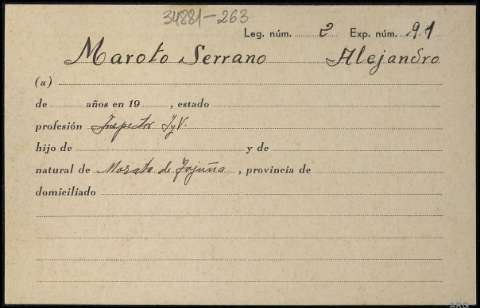 34881-263
Leg. núm. 2 Exp. núm. 191
Maroto Serrano Alejandro
(a)
de años en 19 , estado
profesión Inspector I y V.
hijo de y de
natural de Morata de Tajuña , provincia de
domiciliado